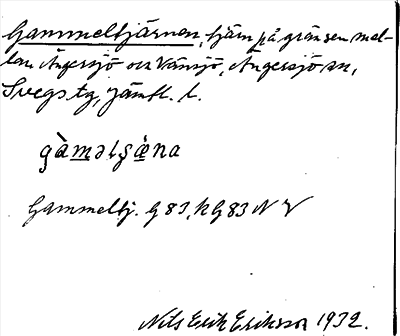 Gammeltjärnen, tjärn på gränsen mel-
lan Ängersjö och Vänsjö, Ängersjö sn,
Svegs tg, Jämtl. l.
gàməlʂæ̀na
Gammeltj. G 83, k G 83 N V
Nils Erik Eriksson 1932.